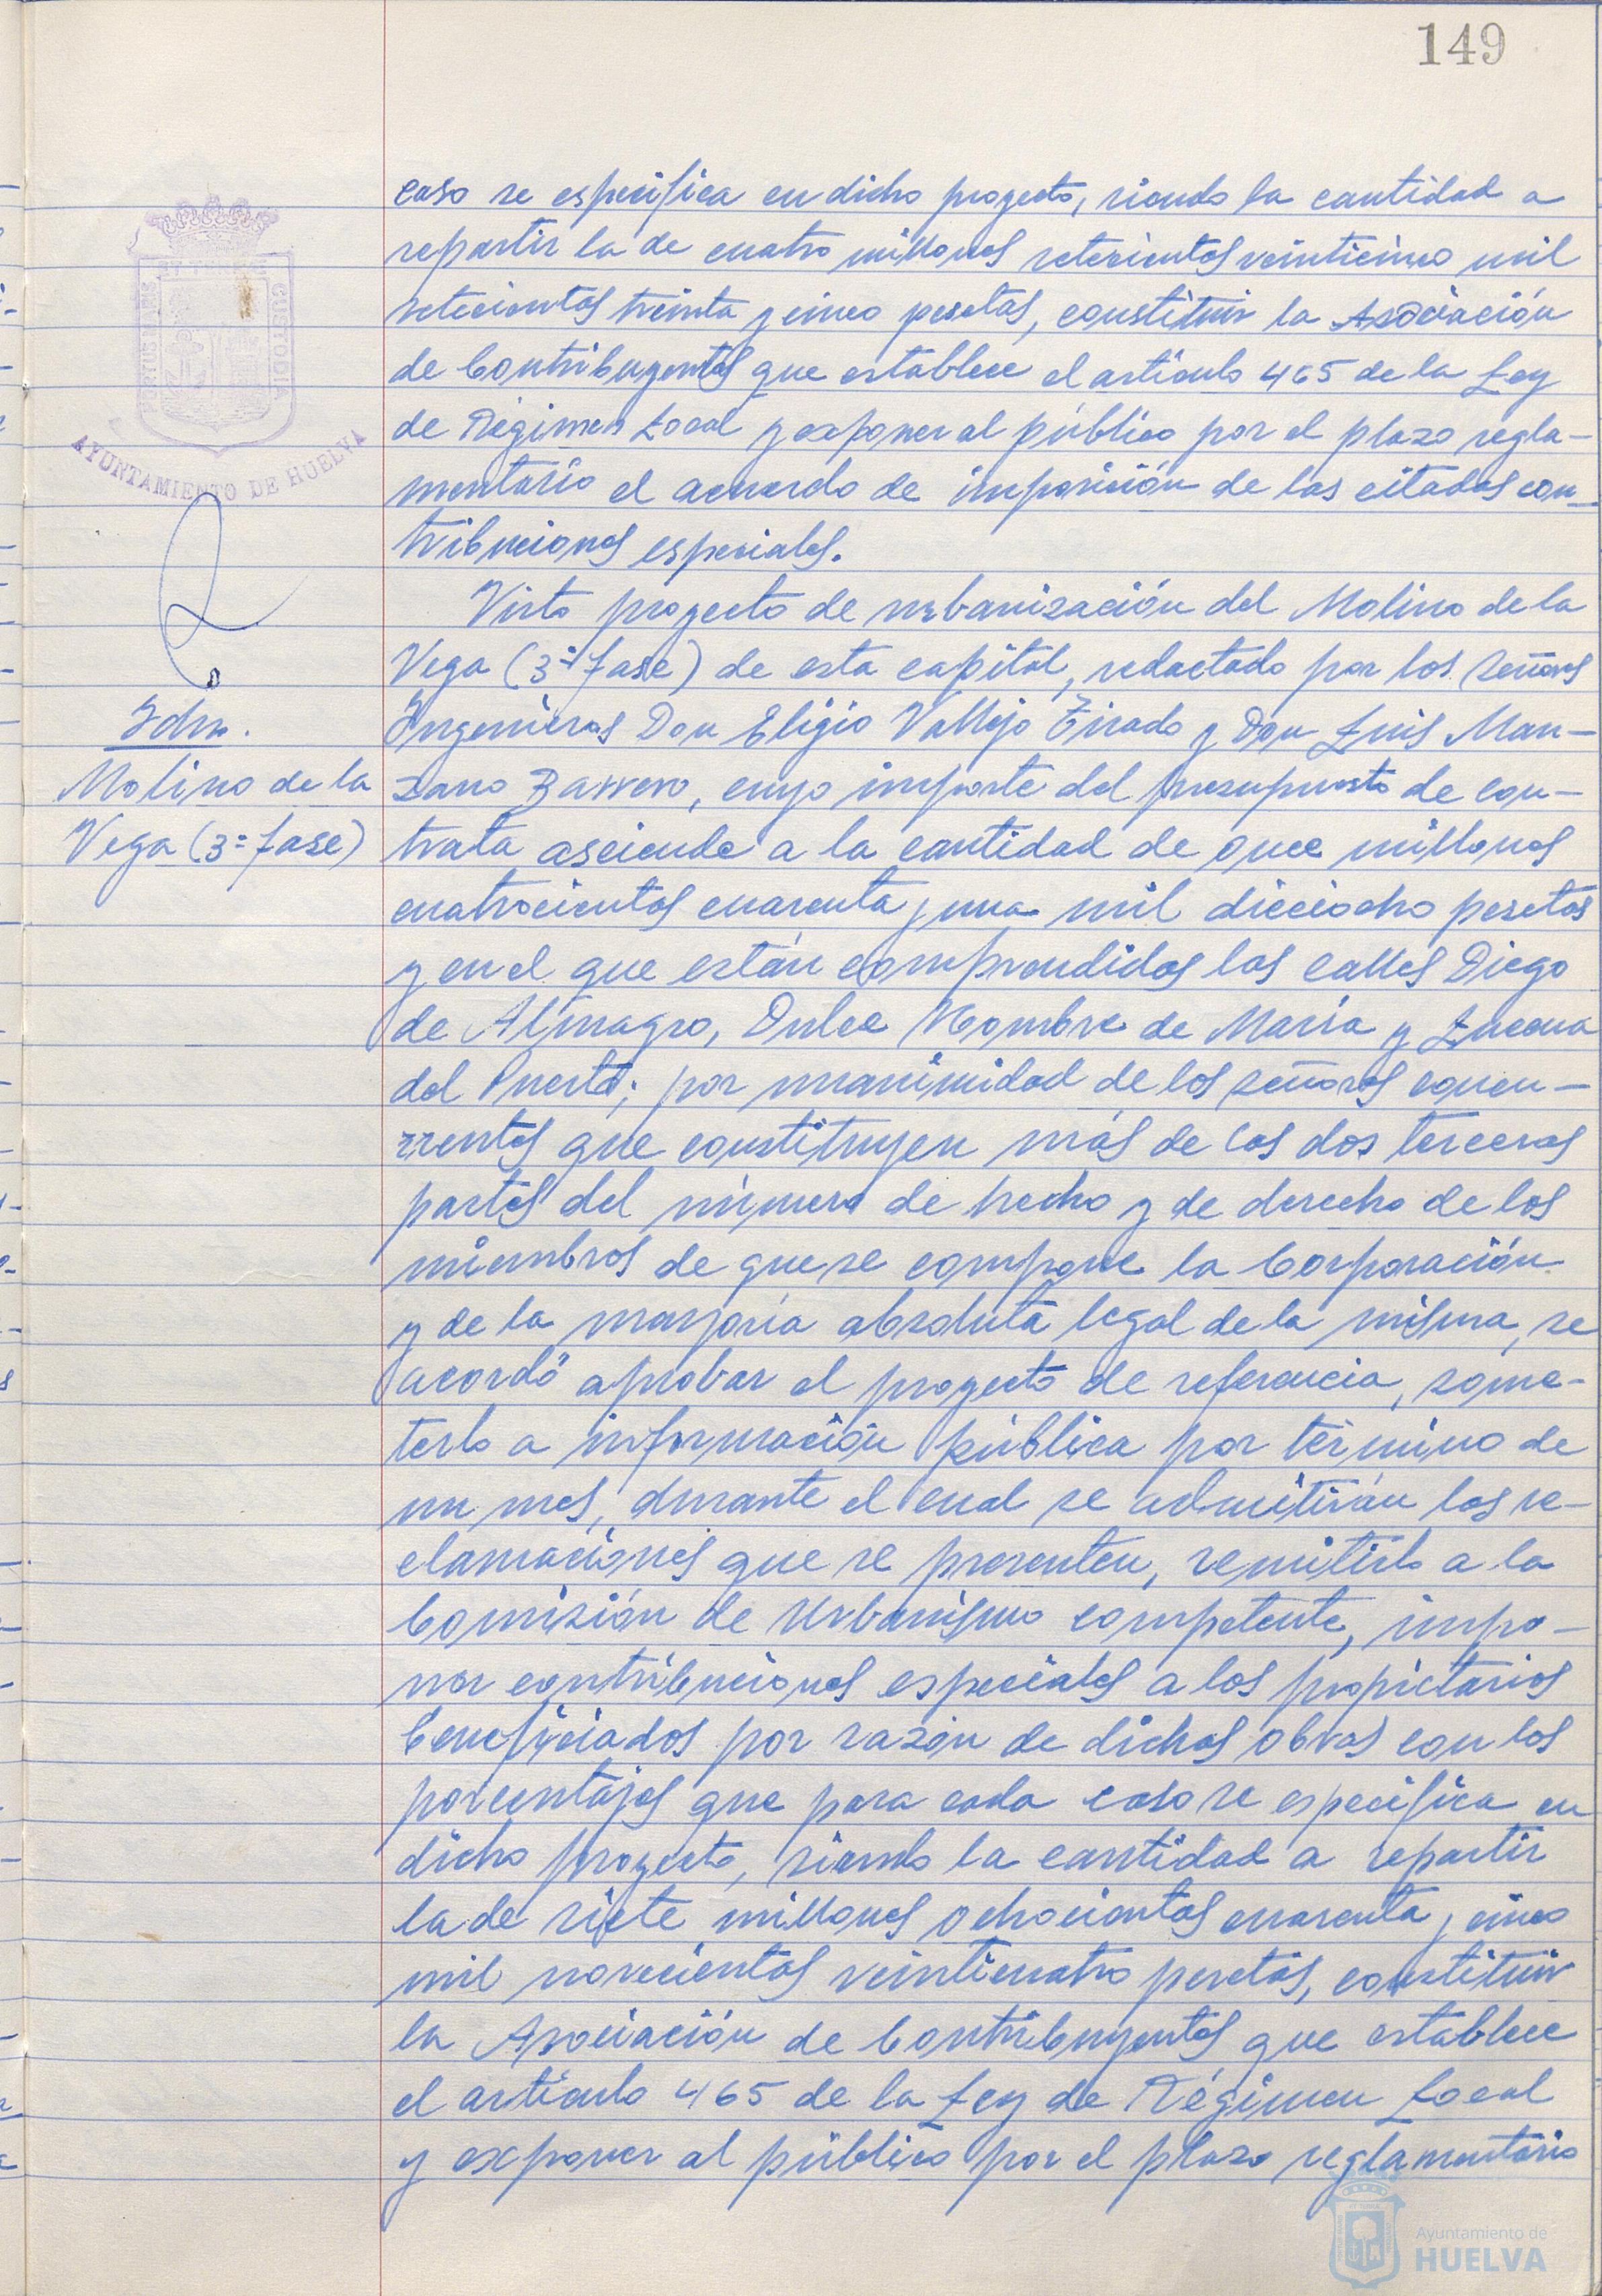 149
caso se especifica en dicho proyecto, siendo la cantidad a
repartir la de cuatro millones setecientos veinticinco mil
setecientas treinta y cinco pesetas, constituir la Asociación
de Contribuyentes que establece el artículo 465 de la Ley
de Régimen Local y exponer al público por el plazo regla-
mentario el acuerdo de imposición de las citadas con-
tribuciones especiales.
Visto proyecto de urbanización del Molino de la
Vega (3ª fase) de esta capital, redactado por los señores
Ingenieros Don Eligio Vallejo Tirado y Don Luis Man-
zano Barrero, cuyo importe del presupuesto de con-
trata asciende a la cantidad de once millones
cuatrocientas cuarenta y una mil dieciocho pesetas
y en el que están comprendidas las calles Diego
de Almagro, Dulce Nombre de María y Lucena
del Puerto; por unanimidad de los señores concu-
rrentes que constituyen más de las dos terceras
partes del número de hecho y de derecho de los
miembros de que se compone la Corporación
y de la mayoría absoluta legal de la misma, se
acordó aprobar el proyecto de referencia, some-
terlo a información pública por término de
un mes, durante el cual se admitirán las re-
clamaciones que se presenten, remitirlo a la
Comisión de Urbanismo competente, impo-
ner contribuciones especiales a los propietarios
beneficiados por razón de dichas obras con los
porcentajes que para cada caso se especifica en
dicho proyecto, siendo la cantidad a repartir
la de siete millones ochocientas cuarenta y cinco
mil novecientas veinticuatro pesetas, constituir
la Asociación de Contribuyentes que establece
el artículo 465 de la Ley de Régimen Local
y exponer al público por el plazo reglamentario
PORTUS MARIS
ET TERRAE
CUSTODIA
AYUNTAMIENTO DE HUELVA
Idm.
Molino de la
Vega (3ª fase)
Ayuntamiento de
HUELVA